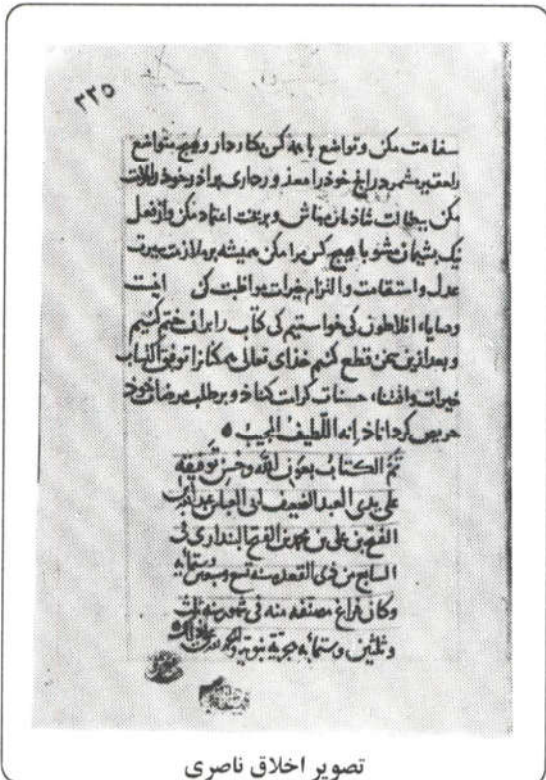 ۳۳۵
سفاهت مکن و تواضع با همه کس بکار دار و هیچ متواضع
را حقیر مشمر در آنچ خود را معذور داری برادر خود را ملامت
مکن ببطالت شادمان مباش و بر بخت اعتماد مکن و از فعل
نیک پشیمان مشو با هیچ کس مرا مکن همیشه بر ملازمت سیرت
عدل و استقامت و التزام خیرات مواظبت کن اینست
وصایاء افلاطون کی خواستیم کی کتاب را بران ختم کنیم
و بعد ازین سخن قطع کنیم خذای تعالی همکنانرا توفیق اکتساب
خیرات و اقتناء حسنات کرامت کناد و بر طلب مرضات خود
حریص کرداناذ انه اللطیف المجیب
تم الکتاب بعون الله و حسن توفیقه
علی یدی العبد الضعیف
الفتح بن علی بن محمد بن الفتح البنداری فی
السابع من ذی القعده سنه تسع و ستمائه
وکان فراغ مصنفه منه فی شهور سنه ثلث
و ثلثین و ستمائه هجریة نبویة
تصویر اخلاق ناصری